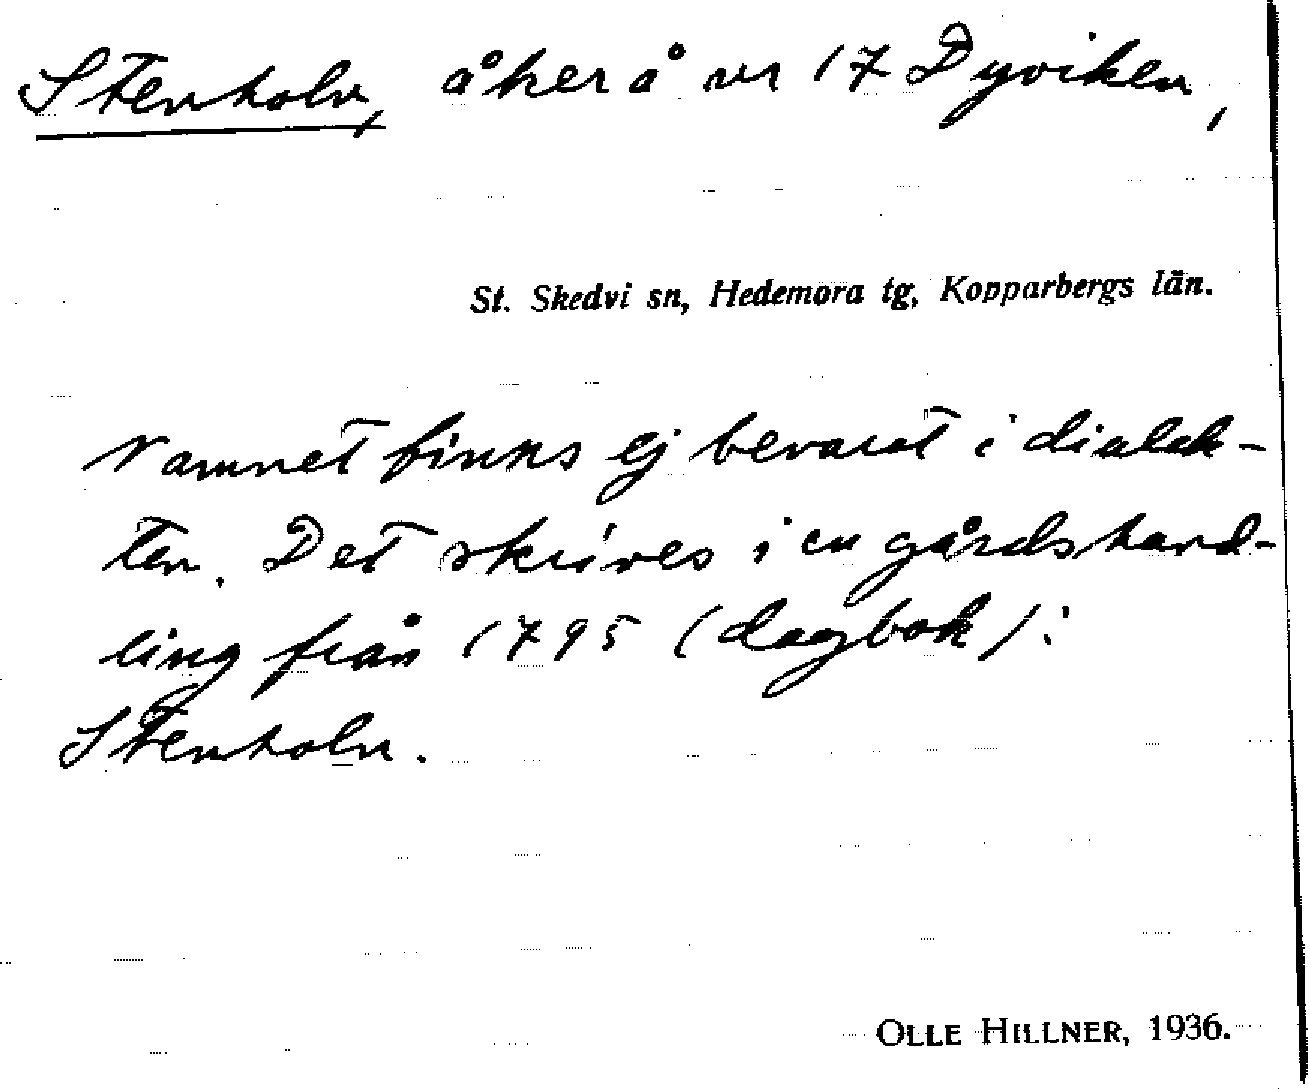 Stenholn, åker å nr 17 Dyviken,
St. Skedvi sn, Hedemora tg, Kopparbergs län.
Namnet finns ej bevarat i dialek-
ten. Det skrives i en gårdshand-
ling från 1795 (dagbok):
Stenholn.
OLLE HILLNER, 1936.